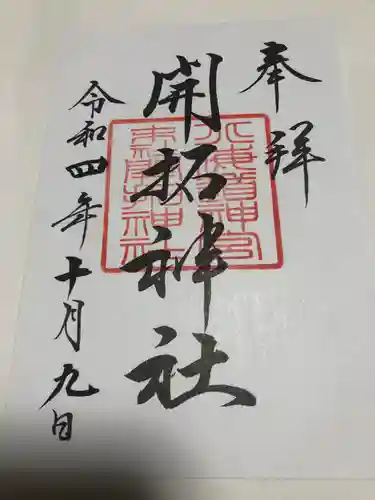 奉拝
開拓神社
令和四年十月九日
北海道神宮
末社開拓神社